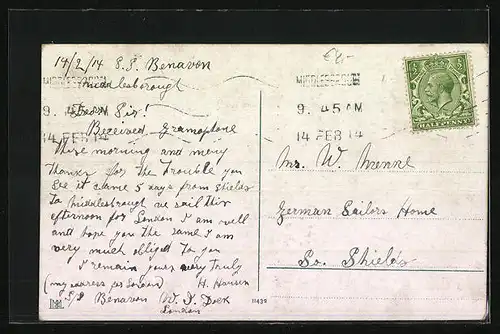 14/2/14 S.S. Benavon
Middlesborough
Dear Sir!
Received Gramophone
These morning and meny
thanks for the trouble you
See it came 5 days from Shields
to Middlesborough we sail this
afternoon for London I am well
and hope you the same I am
very much obliged to you
I remain yours very truly
(my adress for London) H. Hansen
S/S Benavon W. I. Dock
London
MIDDLESBROUGH
9. 45 AM
14 FEB 14
€4.-
MIDDLESBROUGH
9. 45 AM
14 FEB 14
HALFPENNY
Mr. W. Menke
German Sailors Home
So. Shields
11439